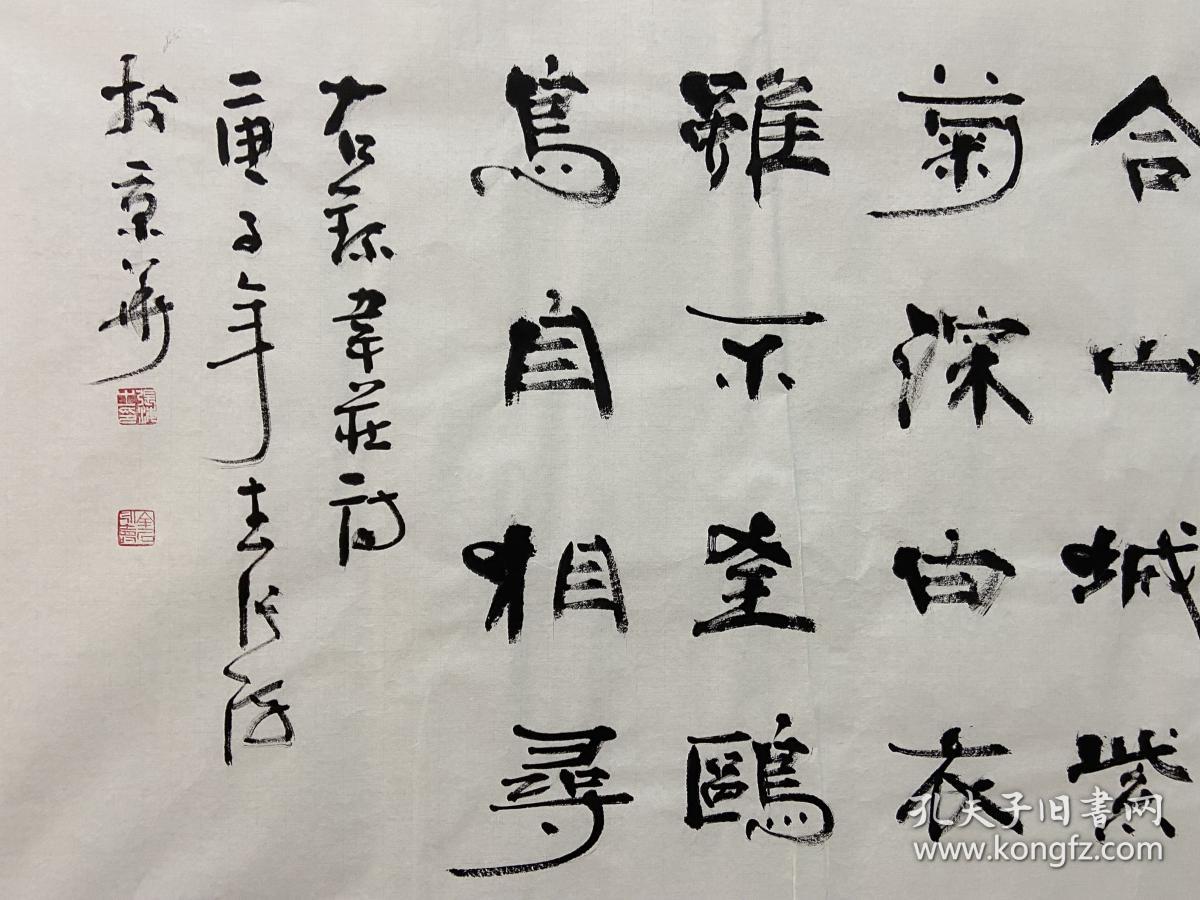 合山城紫
菊深白衣
雖不至鷗
鳥自相尋
右錄韋莊詩
庚子年
於京華
孔夫子旧書网
www.kongfz.com